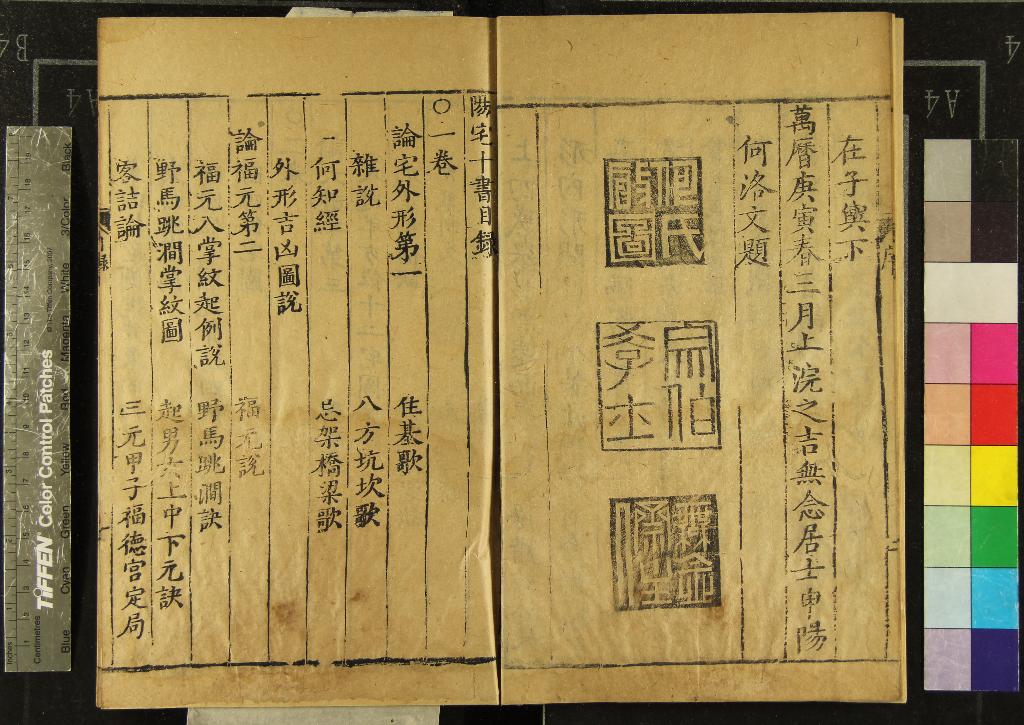 在子輿下
萬曆庚寅春三月上浣之吉無念居士申陽
何洛文題
陽宅十書目錄
○一卷
論宅外形第一
住基歌
雜說
八方坑坎歌
何知經
忌架橋梁歌
外形吉凶圖說
論福元第二
福元說
福元入掌紋起例說
野馬跳澗訣
野馬跳澗掌紋圖
起男女上中下元訣
客詰論
三元甲子福德宮定局
TIFFEN Color Control Patches
Blue
Cyan
Green
Yellow
Red
Magenta
White
3/Color
Black
Centimetres
Inches
A4
A4
B4